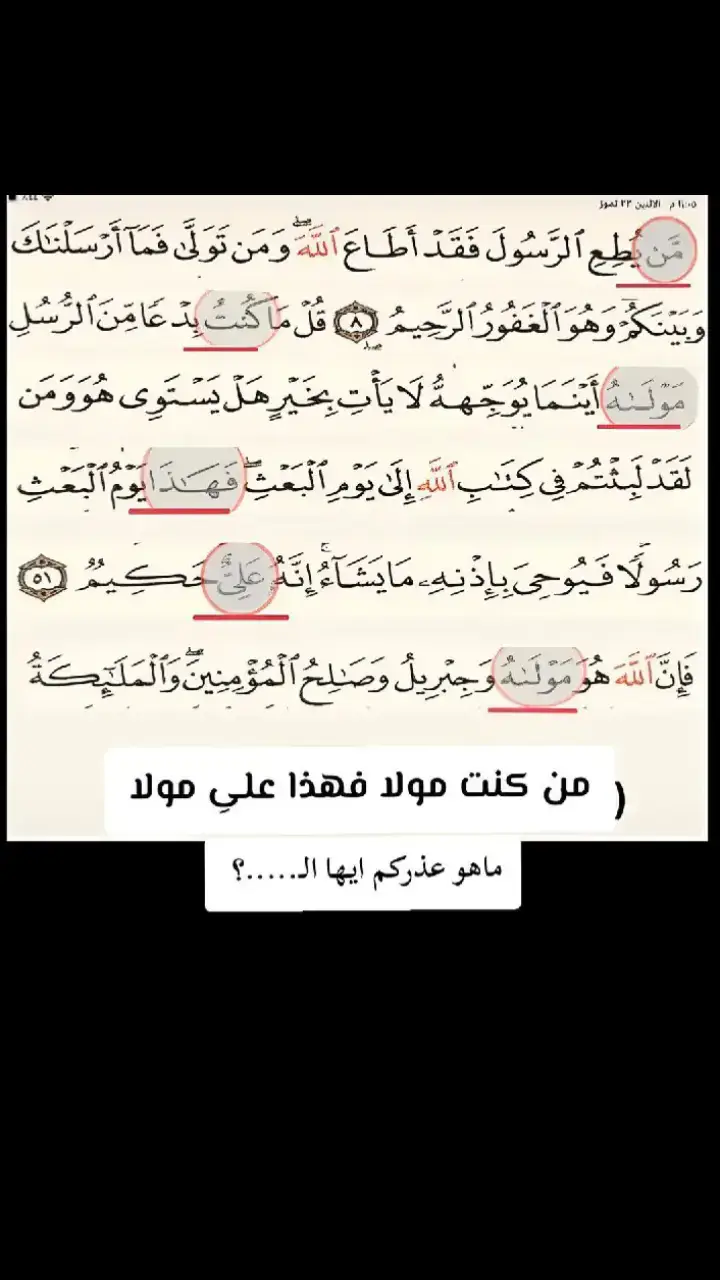 ١١:٠٥ م الاثنين ٢٢ تموز
مَّن يُطِعِ ٱلرَّسُولَ فَقَدْ أَطَاعَ ٱللَّهَ ۖ وَمَن تَوَلَّىٰ فَمَآ أَرْسَلْنَٰكَ
وَبَيْنَكُمْ ۖ وَهُوَ ٱلْغَفُورُ ٱلرَّحِيمُ ٨ قُلْ مَا كُنتُ بِدْعًا مِّنَ ٱلرُّسُلِ
مَوْلَىٰهُ أَيْنَمَا يُوَجِّههُّ لَا يَأْتِ بِخَيْرٍ هَلْ يَسْتَوِى هُوَ وَمَن
لَقَدْ لَبِثْتُمْ فِى كِتَٰبِ ٱللَّهِ إِلَىٰ يَوْمِ ٱلْبَعْثِ ۖ فَهَٰذَا يَوْمُ ٱلْبَعْثِ
رَسُولًا فَيُوحِىَ بِإِذْنِهِۦ مَا يَشَآءُ ۚ إِنَّهُۥ عَلِىٌّ حَكِيمٌ ٥١
فَإِنَّ ٱللَّهَ هُوَ مَوْلَىٰهُ وَجِبْرِيلُ وَصَٰلِحُ ٱلْمُؤْمِنِينَ ۖ وَٱلْمَلَٰٓئِكَةُ
( من كنت مولا فهذا علي مولا
ماهو عذركم ايها الـ.....؟